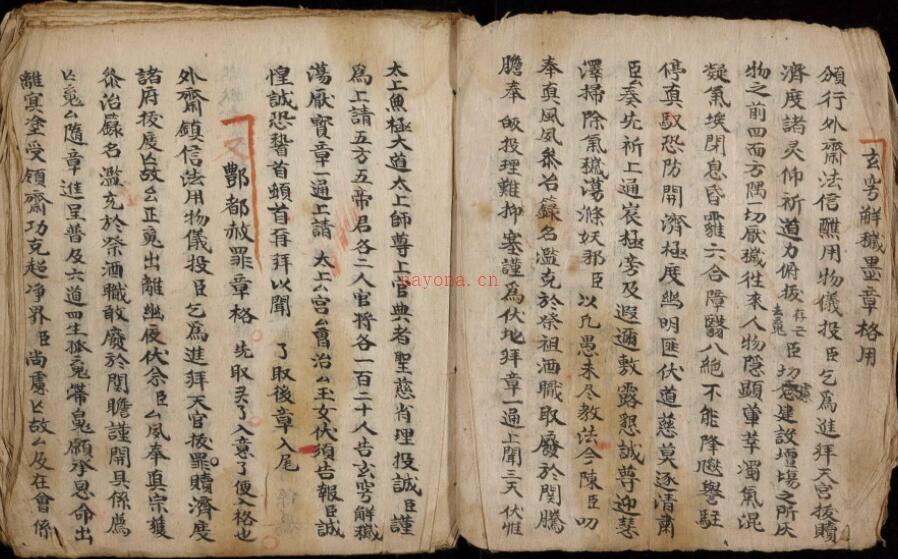 玄穹解穢墨章格用
頒行外齋法信醮用物儀投臣乞為進拜天官拔贖
濟度諸灵仰祈道力俯拔存亡臣切慮建設壇場之所庆
去鬼
物之前四面方隅一切厭穢往來人物隱顕葷莘濁氣混
凝氣埃閉息昏霾六合障翳八絶不能降邀轝駐
停真馭恐防開濟極度幽明匪伏道慈莫逐清肅
臣厶奏先祈上通衮極旁及遐邇敷露懇誠尊迎慧
澤掃除氣穢蕩滌妖邪臣以凡愚未尽教法今陳臣叨
奉真風夙叅治籙名濫充於祭祖酒職取廢於関騰
膽奉皈投理難抑塞謹為伏地拜章一通上聞三天伏惟
太上魚極大道太上師尊上官典者聖慈肖理投誠臣謹
為上請五方五帝君各二人官将各一百二十人告玄穹解穢
蕩厭寳章一通上請太上厶宫厶曹治厶玉女伏須告報臣誠
惶誠恐稽首頓首再拜以聞 了取後章入尾
又 酆都赦罪章格 先取灵了入意了便入格也
外齋鎮信法用物儀投臣乞為進拜天官拔罪贖濟度
諸府後度亡故厶正䰟出離幽夜伏念臣厶夙奉真宗獲
叅治籙名濫充於祭酒職敢廢於関瞻謹開具係薦
亡䰟厶随章進呈普及六道四生孤䰟滯鬼願承恩命出
離冥塗受領齋功克超净界臣尚慮亡故厶及在會係
nayona.cn